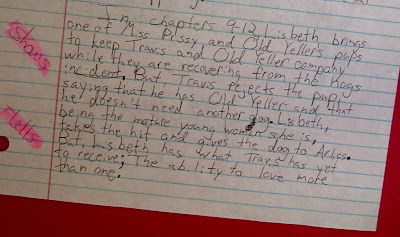 In chapters 9-12 Lisbeth brings
one of Miss Prissy and Old Yeller's pups
to keep Travis and Old Yeller company
while they are recovering from the hogs
incident. But Travis rejects the pup
saying that he has Old Yeller and that
he doesn't need another dog. Lisbeth,
being the mature young woman she is,
takes the hit and gives the dog to Arliss.
But, Lisbeth has what Travis has yet
to receive; The ability to love more
than one.
shows
tells